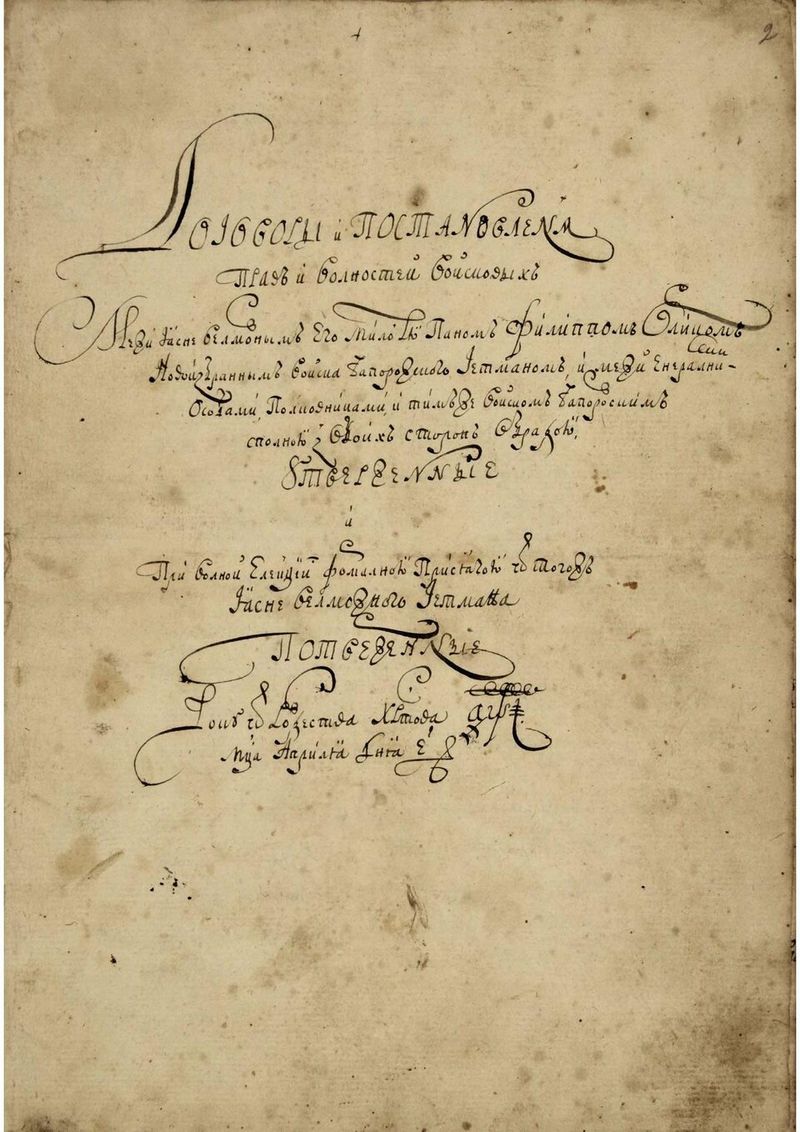 2
Договоры и Постановленѧ
Правъ и волностей войсковыхъ
Межи Ясне велможнымъ Его Милостю Паномъ Филиппомъ Орликомъ
Новоизбраннымъ войска Запорожского Гетманом, и межи Енерални-
ми
Особами Полковниками, и тимъже войском Запорозкимъ
сполною з обоихъ сторонъ обрадою
Утверженные
и
При волной Елекцїи формалною Присягою ѿ тогожъ
Ясне велможного Гетмана
Потверженные
Року ѿ Рожества Христова ҂аѱі
Мца Априлїа дня є